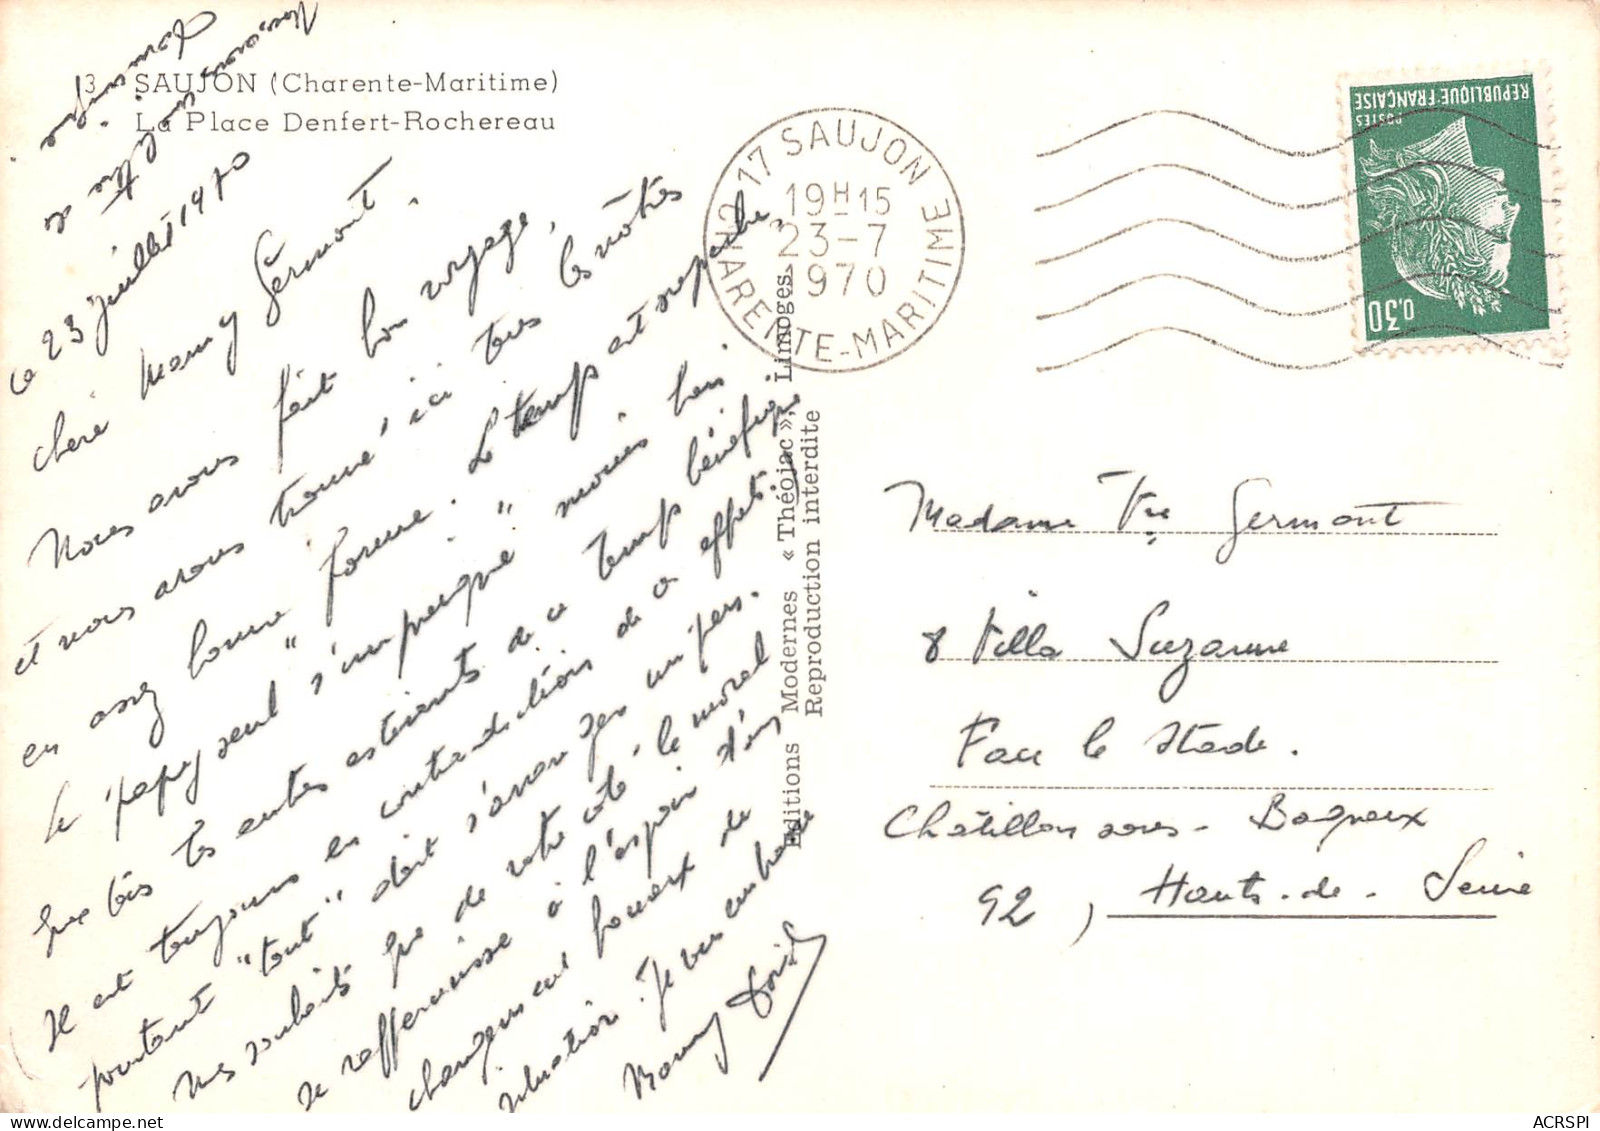 3 SAUJON (Charente-Maritime)
La Place Denfert-Rochereau
Ce 23 Juillet 1970
chère Mamy Germont,
Nous avons fait bon voyage,
et nous avons trouvé ici tous les nôtres
en assez bonne forme. Le temps est superbe,
le "papy" seul s'imprègne moins bien
que les autres estivants de ce temps bénéfique
Il est toujours en contradictions de ce effet.
pourtant "tout" doit s'arranger un peu.
Mes souhaits que de votre côté, le moral
se raffermisse à l'espoir d'un
changement heureux de
situation. Je vous embrasse
Mamy
17 SAUJON
CHARENTE-MARITIME
19H15
23-7
970
REPUBLIQUE FRANÇAISE
POSTES
0,30
Editions Modernes « Théojac », Limoges.
Reproduction interdite
Madame Vve Germont
8 Villa Suzanne
Face le Stade.
Châtillon sous-Bagneux
92, Hauts-de-Seine
ACRSPI